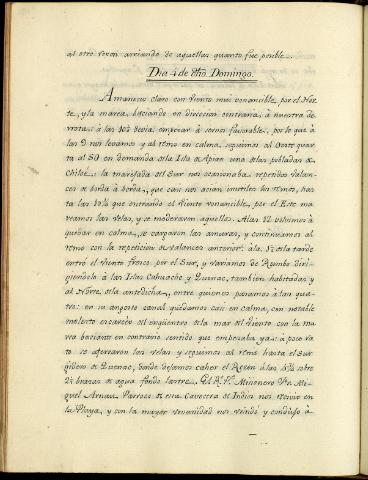 al otro rezon arriando de aquellas quanto fue posible.
Dia 4 de dho. Domingo.
Amanecio claro con viento mui vonancible, por el Nor-
te, y la marea, haciendo en direccion contraria, â nuestra de-
rrota: â las 10½ devia empezar â sernos favorable, por lo que â
las 9 nos levamos y al remo en calma, seguimos al Oeste quar-
ta al SO en demanda dela Isla de Apiao una delas pobladas de
Chiloé: la marejada del Sur nos ocasionava repetidos valan-
ces de borda â borda, que casi nos acian inutiles los remos, has-
ta las 10¾ que entrando el viento vonancible, por el Este ma-
reamos las velas, y se moderaron aquellos. Alas 12 volvimos â
quedar en calma, se cargaron las amuras, y continuamos al
remo con la repeticion de valances anterior: âla 1½ dela tarde
entró el viento fresco por el Sur, y variamos de Rumbo diri-
giendola â las Islas Cahuache y Quenac, tambien habitadas y
al Norte dela antedicha, entre quienes pasamos âlas qua-
tro: en su angosto canal quedamos casi en calma, con notable
molesto encaredo del enquentro dela mar del viento con la ma-
rea baciante en contrario sentido que empesaba ya: â poco ra-
to se aferraron las velas y seguimos al remo hasta el Sur-
gidero de Quenac, donde dejamos caher el Rezon âlas 5¾ sobre
2½ brazas de agua fondo lastre. El Rdo. Pe. Misionero Fr. Mi-
guel Parroco de esta Cavecera de Indios nos recivio en
la Playa, y con la mayor vonanidad nos vrindó y condujo â